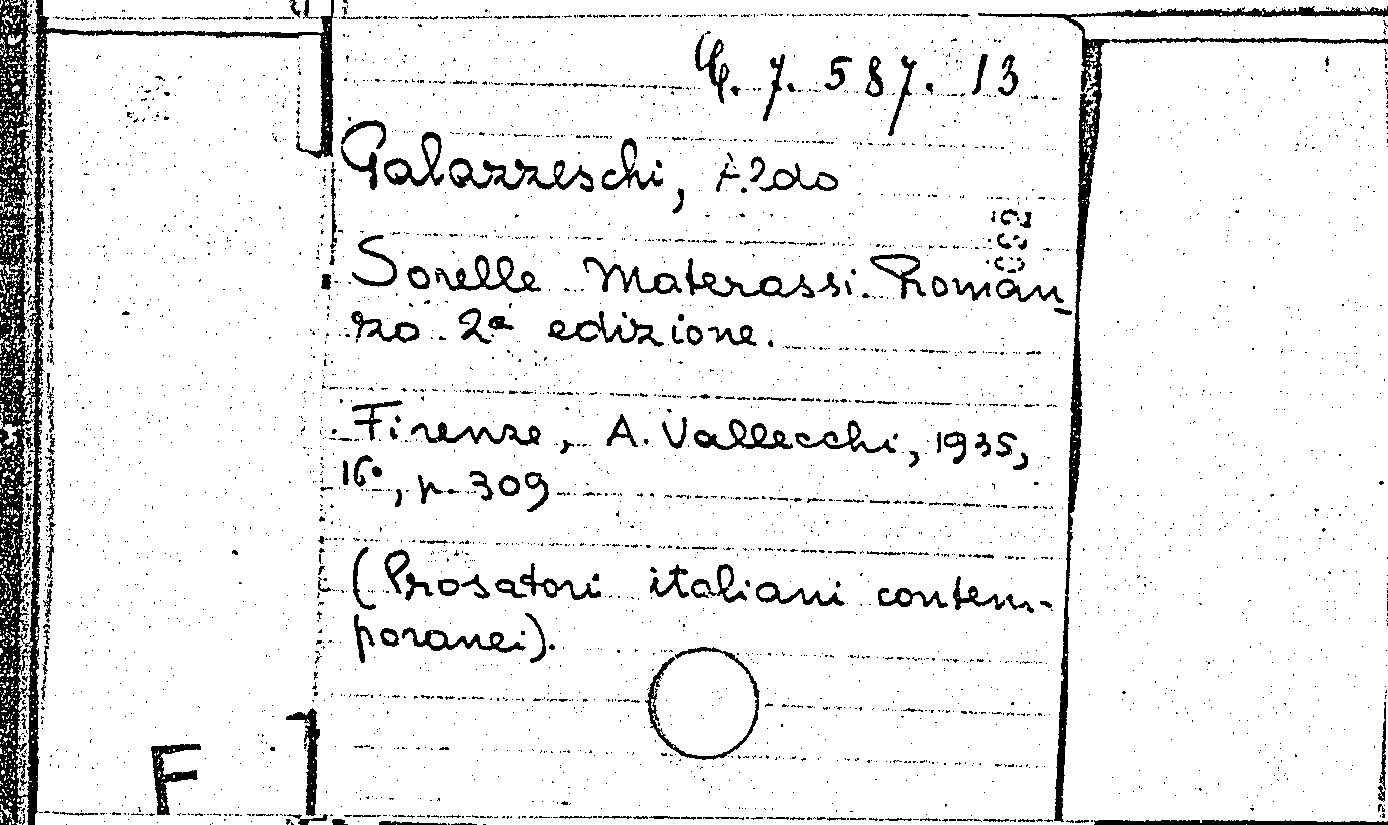 7. 587. 13
Palazzeschi, Aldo
Sorelle Materassi. Roman-
zo 2ª edizione.
Firenze, A. Vallecchi, 1935,
16°, p. 309
(Prosatori italiani contem-
poranei).
F